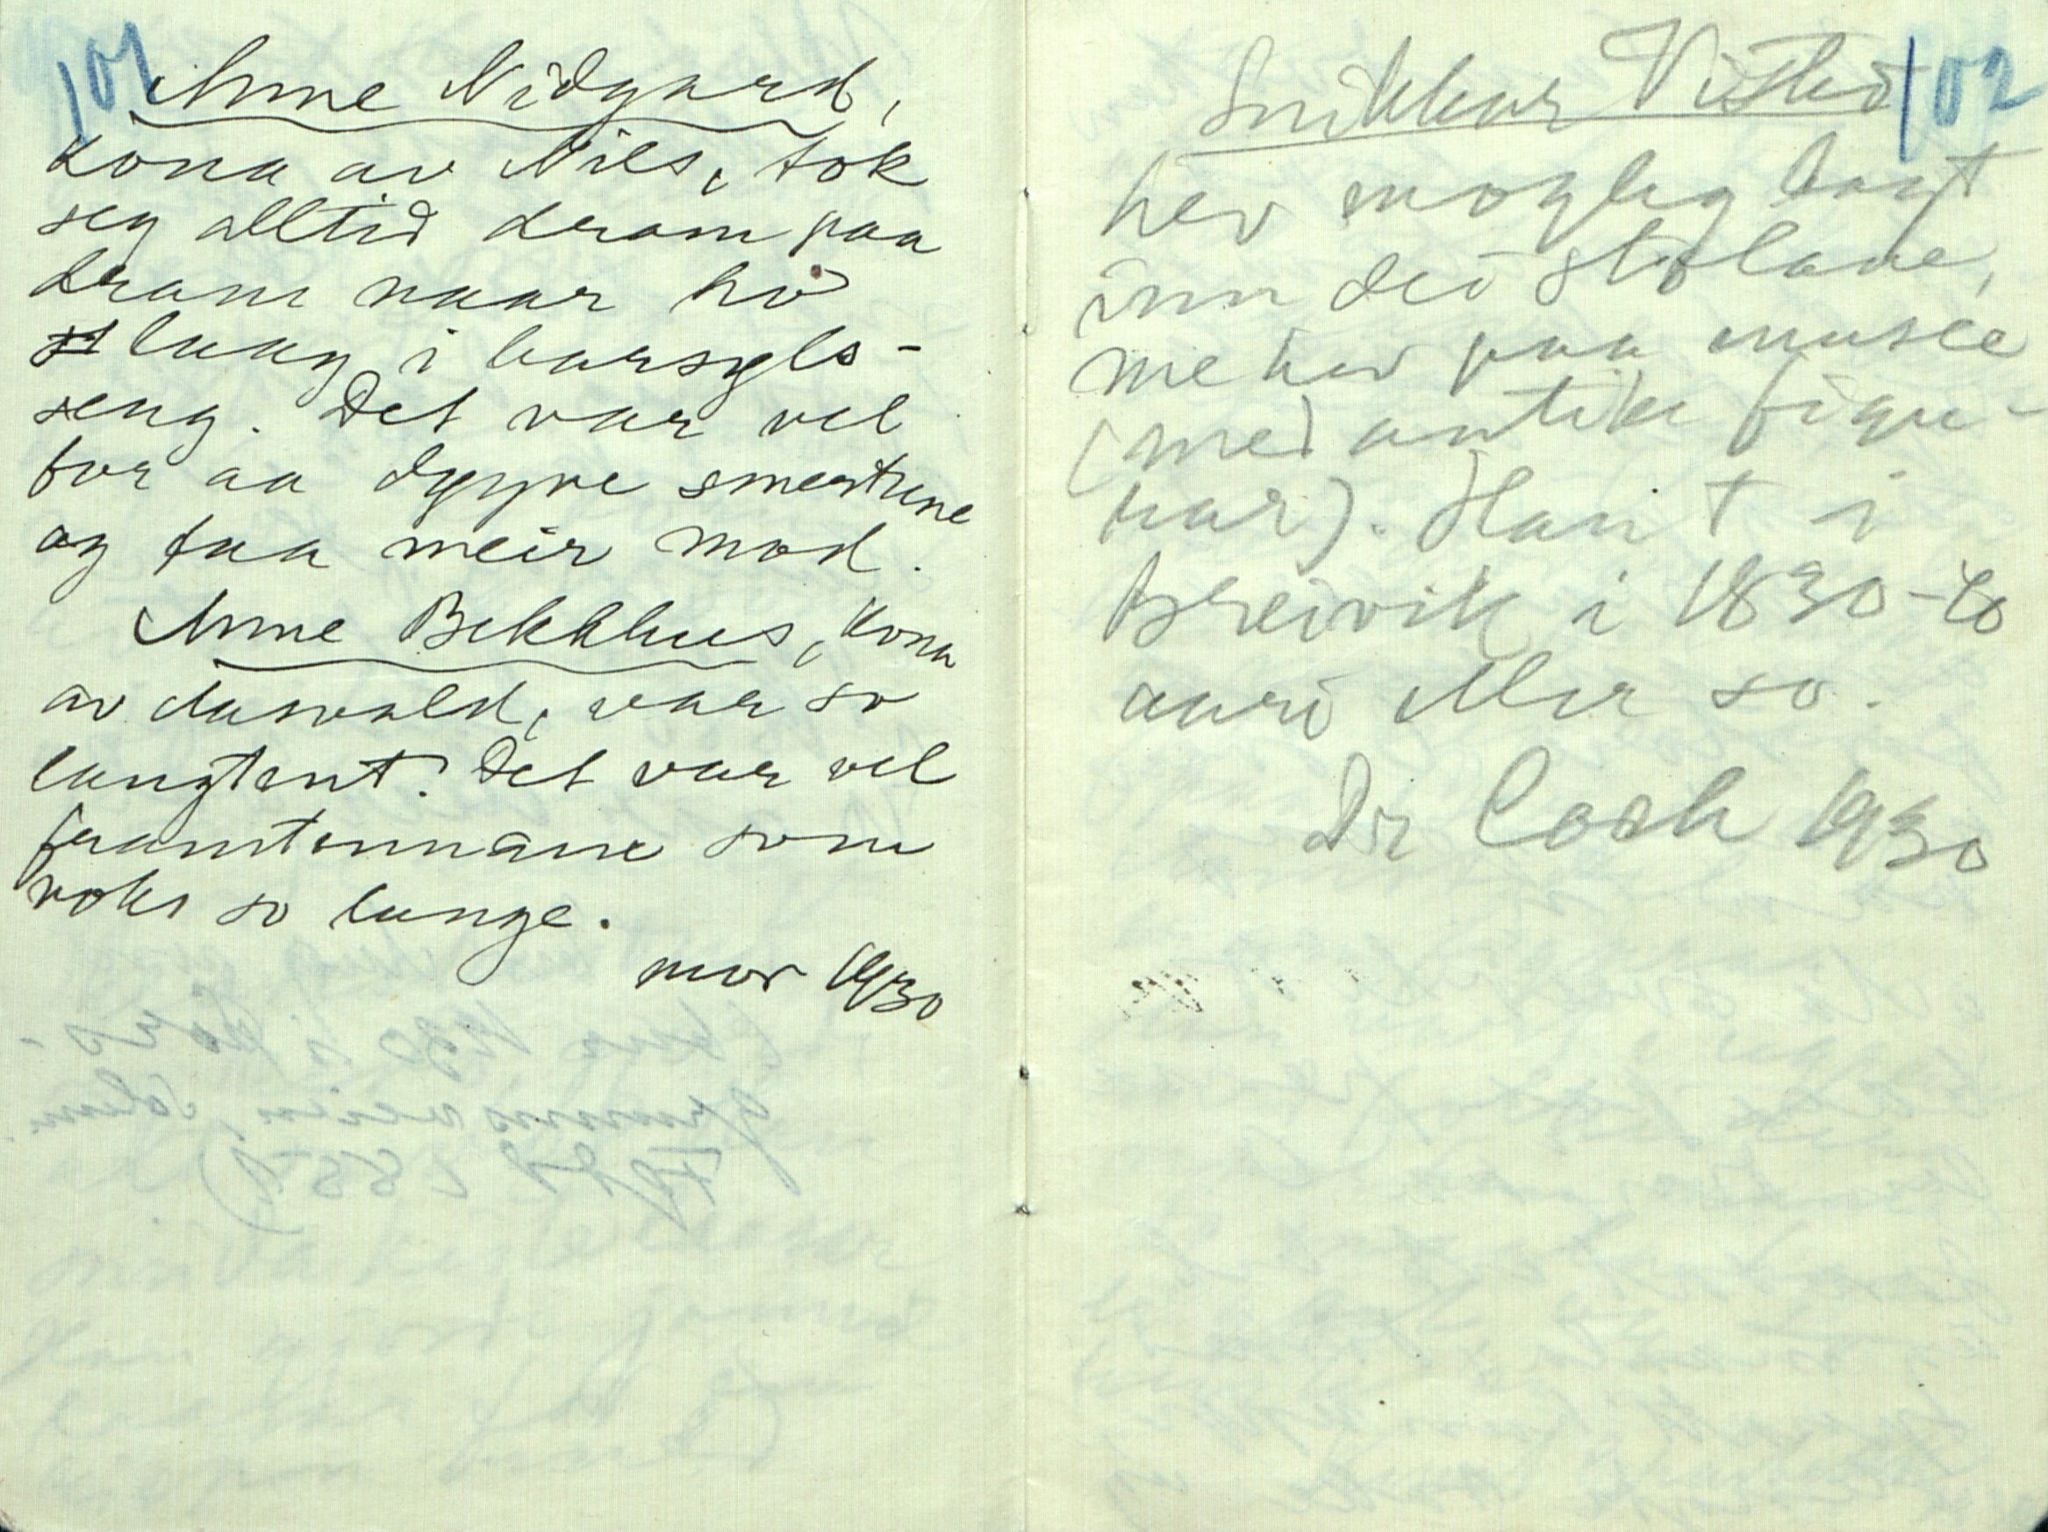 101
Anne Nidgard,
kona av Nils, tok
seg alltid dram paa
dram naar ho
laag i barsgls-
seng. Det var vel
for aa døyve smertune
og faa meir mod.
Anne Bekkhus, kona
av Aasvald, var so
langtent. Det var vel
framtennane som
voks so lange.
mor 1930
102
Snikkar Visted
hev mogleg bragt
inn dei stolane,
me hev paa musee
(med antike figu-
rar). Han † i
Breivik i 1830-40
aari eller so.
Dr Coch 1930